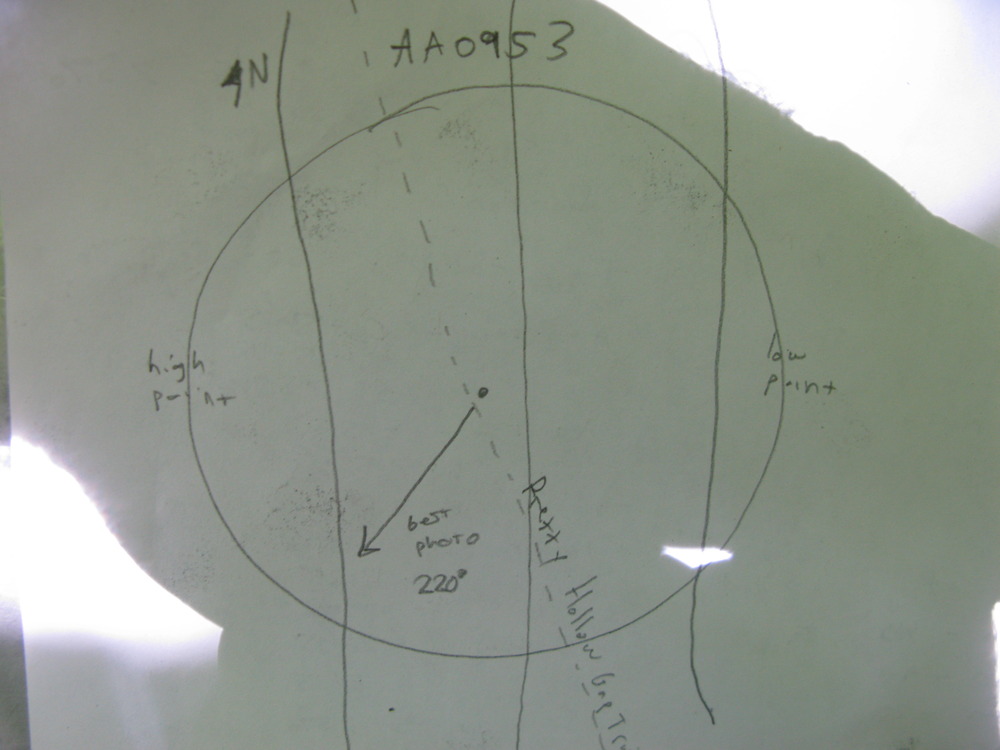 N
AA0953
high
point
low
point
best
photo
220°
Pretty Hollow Gap